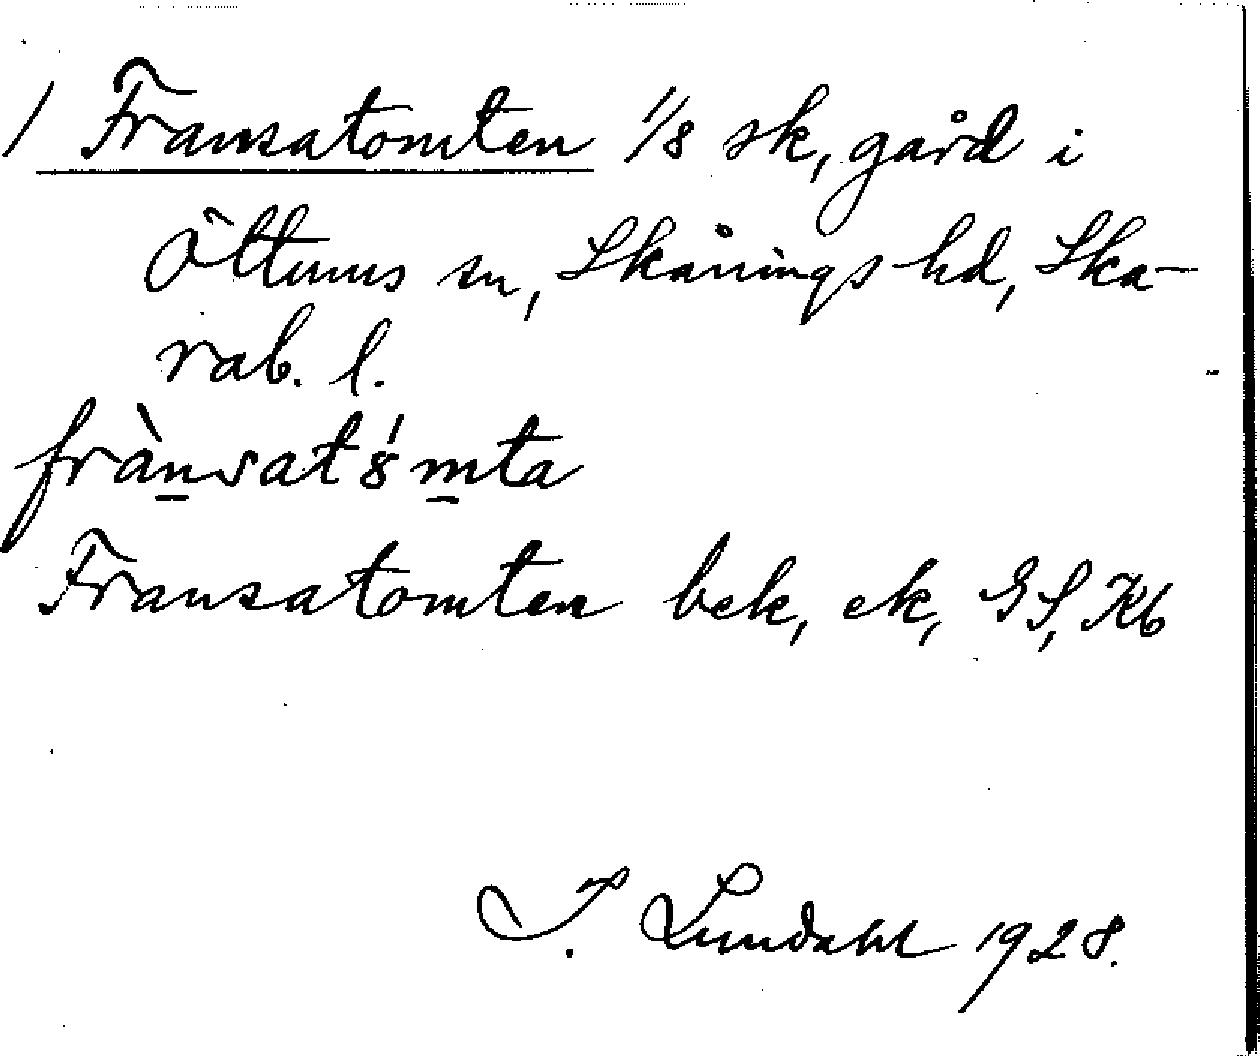 / Fransatomten 1/8 sk, gård i
Öttums sn, Skånings hd, Ska-
rab. l.
frànsat8́mta
Fransatomten bek, ek, GS, Kb
I. Lundahl 1928.